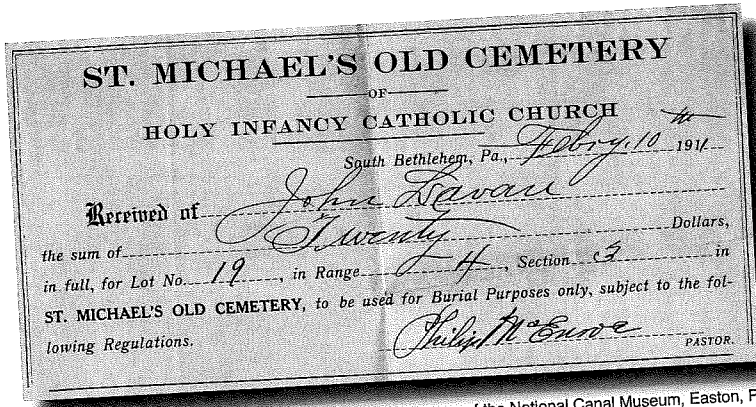 ST. MICHAEL'S OLD CEMETERY
OF
HOLY INFANCY CATHOLIC CHURCH
South Bethlehem, Pa., Febry. 10th 1911
Received of John Lavan
the sum of Twenty Dollars,
in full, for Lot No. 19, in Range 4, Section 3 in
ST. MICHAEL'S OLD CEMETERY, to be used for Burial Purposes only, subject to the fol-
lowing Regulations.
Philip McEnroe PASTOR.
of the National Canal Museum, Easton,